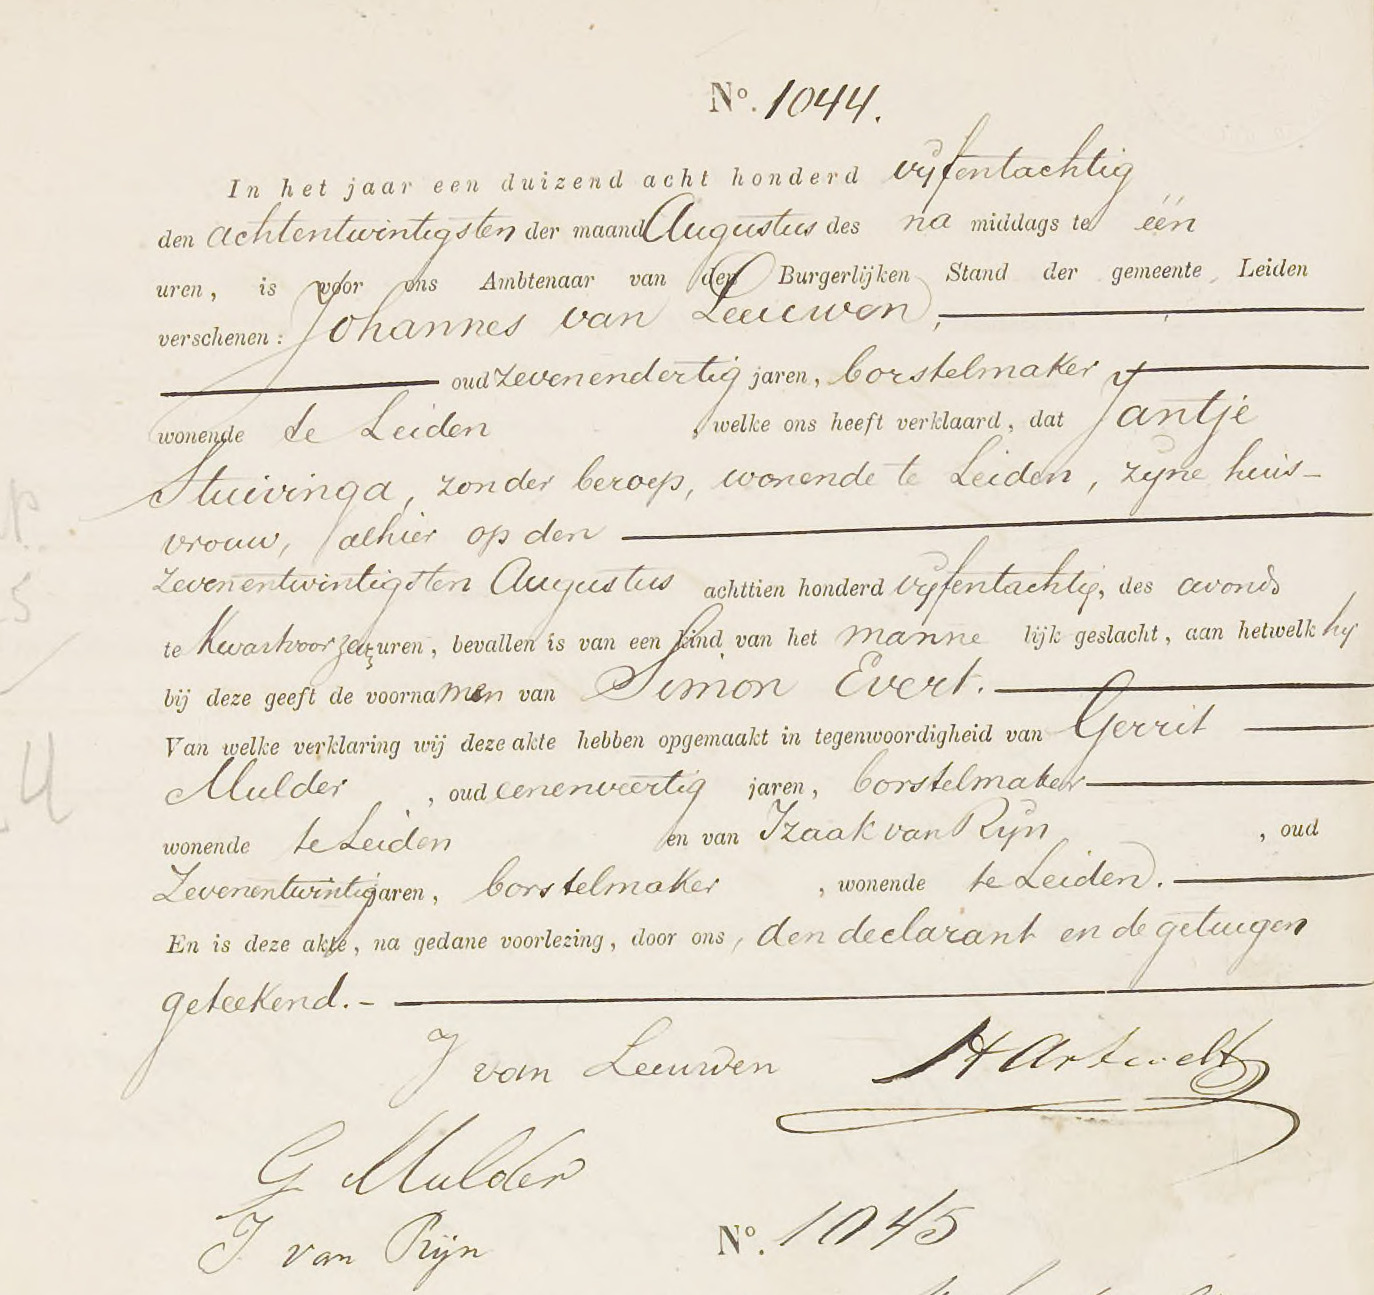 Nº. 1044.
In het jaar een duizend acht honderd vyfentachtig
den achtentwintigsten der maand Augustus des na middags te één
uren, is voor ons Ambtenaar van den Burgerlijken Stand der gemeente Leiden
verschenen: Johannes van Leeuwen,
oud zevenendertig jaren, borstelmaker
wonende te Leiden, welke ons heeft verklaard, dat Jantje
Stuivinga, zonder beroep, wonende te Leiden, zyne huis-
vrouw, alhier op den
zevenentwintigsten Augustus achttien honderd vyfentachtig, des avonds
te Kwartvoor zes uren, bevallen is van een kind van het manne lijk geslacht, aan hetwelk hy
bij deze geeft de voornamen van Simon Evert.
Van welke verklaring wij deze akte hebben opgemaakt in tegenwoordigheid van Gerrit
Mulder, oud eenenveertig jaren, borstelmaker
wonende te Leiden en van Izaak van Ryn, oud
Zevenentwintig jaren, borstelmaker, wonende te Leiden.
En is deze akte, na gedane voorlezing, door ons, den declarant en de getuigen
geteekend.-
J van Leeuwen
G Mulder
J van Rijn
Nº. 1045